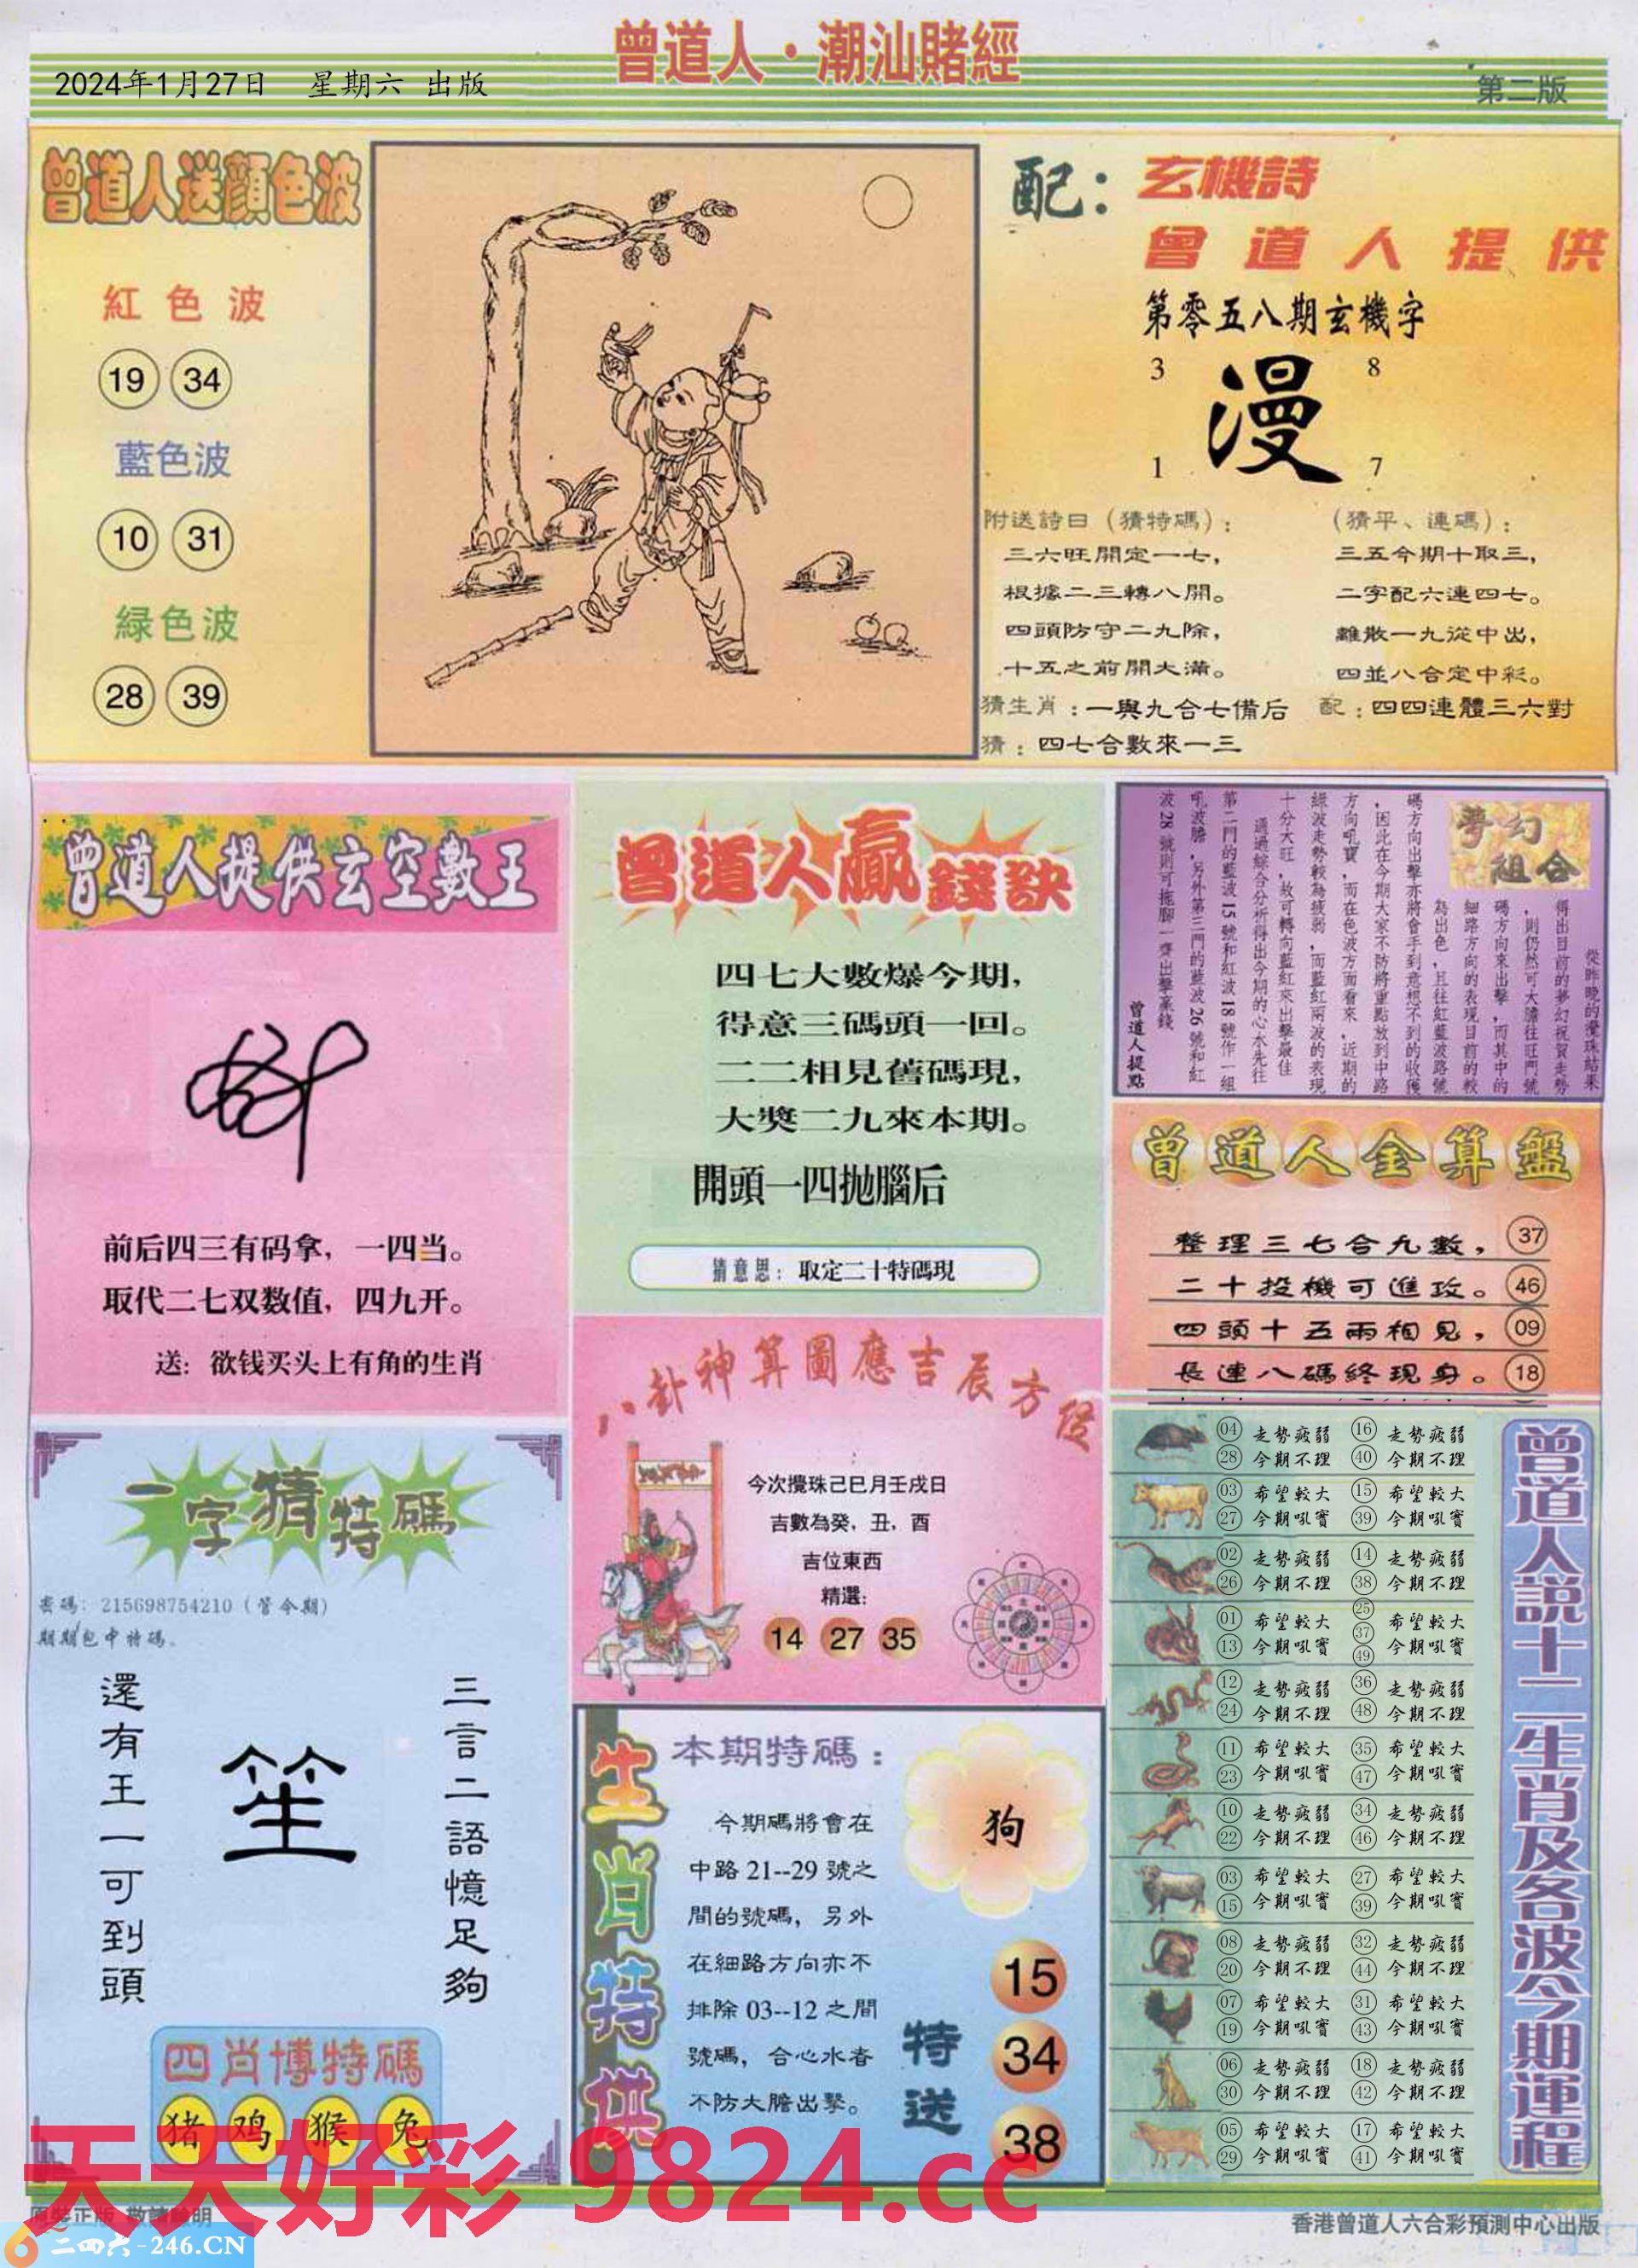 曾道人·潮汕賭經
2024年1月27日 星期六 出版
第二版
曾道人送顏色波
紅色波
19 34
藍色波
10 31
緑色波
28 39
配：玄機詩
曾道人提供
第零五八期玄機字
3 8
漫
1 7
附送詩日（猜特碼）：
三六旺開定一七，
根據二三轉八開。
四頭防守二九除，
十五之前開大滿。
（猜平、連碼）：
三五今期十取三，
二字配六連四七。
離散一九從中出，
四並八合定中彩。
猜生肖：一與九合七備后 配：四四連體三六對
猜：四七合數來一三
曾道人提供玄空數王
前后四三有码拿，一四当。
取代二七双数值，四九开。
送：欲钱买头上有角的生肖
曾道人贏錢訣
四七大數爆今期，
得意三碼頭一回。
二二相見舊碼現，
大獎二九來本期。
開頭一四抛腦后
猜意思：取定二十特碼現
夢幻組合
從昨晚的攪珠結果
得出目前的夢幻祝賀走勢
，則仍然可大膽往旺門號
碼方向來出擊，而其中的
細路方向的表現目前的較
為出色，且往紅藍波路號
碼方向出擊亦將會手到意想不到的收獲
，因此在今期大家不防將重點放到中路
方向吼寶，而在色波方面看來，近期的
緑波走勢較為疲弱，而藍紅兩波的表現
十分大旺，故可轉向藍紅來出擊最佳
通過綜合分析得出今期的心水先往
第二門的藍波15號和紅波18號作一組
吼波膽，另外第三門的藍波26號和紅
波28號則可拖腳一齊出擊贏錢
曾道人提點
曾道人金算盤
整理三七合九數， 37
二十投機可進攻。 46
四頭十五兩相見， 09
長連八碼終現身。 18
八卦神算圖應吉辰方徑
今次攪珠己巳月壬戌日
吉數為癸，丑，酉
吉位東西
精選：
14 27 35
一字猜特碼
密碼：215698754210（管今期）
期期包中特碼。
三言二語憶足夠
笙
還有王一可到頭
四肖博特碼
猪 鸡 猴 兔
生肖特供
本期特碼：
今期碼將會在
中路21--29號之
間的號碼，另外
在細路方向亦不
排除03--12之間
號碼，合心水者
不防大膽出擊。
狗
特送
15
34
38
曾道人説十二生肖及各波今期運程
04 走勢疲弱 16 走勢疲弱
28 今期不理 40 今期不理
03 希望較大 15 希望較大
27 今期吼實 39 今期吼實
02 走勢疲弱 14 走勢疲弱
26 今期不理 38 今期不理
01 希望較大 25 37 希望較大
13 今期吼實 49 今期吼實
12 走勢疲弱 36 走勢疲弱
24 今期不理 48 今期不理
11 希望較大 35 希望較大
23 今期吼實 47 今期吼實
10 走勢疲弱 34 走勢疲弱
22 今期不理 46 今期不理
03 希望較大 27 希望較大
15 今期吼實 39 今期吼實
08 走勢疲弱 32 走勢疲弱
20 今期不理 44 今期不理
07 希望較大 31 希望較大
19 今期吼實 43 今期吼實
06 走勢疲弱 18 走勢疲弱
30 今期不理 42 今期不理
05 希望較大 17 希望較大
29 今期吼實 41 今期吼實
天天好彩 9824.cc
原裝正版 敬請驗明
二四六-246.CN
香港曾道人六合彩預測中心出版